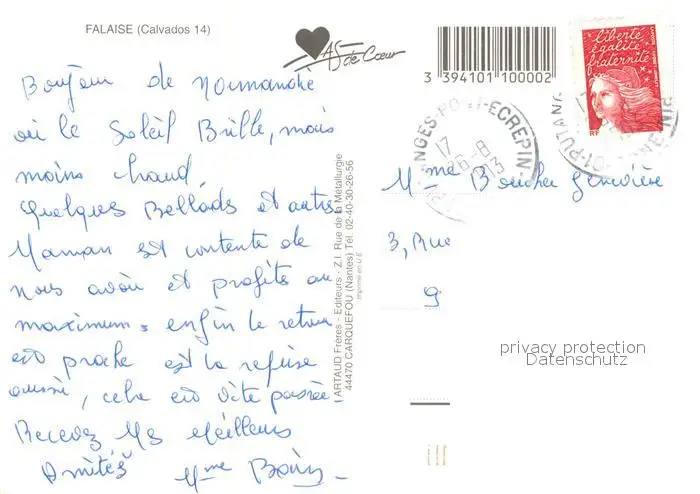 FALAISE (Calvados 14)
As de Cœur
3 394101 100002
liberté
égalité
fraternité
RF
PUTANGES-PONT-ECREPIN
17
26-8
Bonjour de Normandie
où le Soleil Brille, mais
moins chaud
quelques Ballads et autres
Maman est contente de
nous avoir et profits au
maximum, enfin le retour
est proche est la refuise
aussi, cela est vite passée.
Recevez Mes Meilleurs
Amités Mme
ARTAUD Frères - Editeurs - Z.I. Rue de la Métallurgie
44470 CARQUEFOU (Nantes) Tél. 02-40-30-26-56
Imprimé en U.E.
Mme Boucher Geneviève
3, Rue
9
privacy protection
Datenschutz